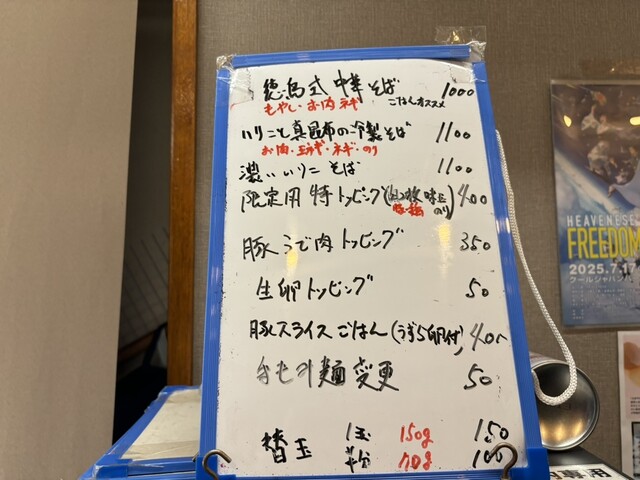 徳島式 中華そば 1000
もやし・お肉 ネギ ごはんオススメ
いりこと真昆布の冷製そば 1100
お肉・玉ネギ・ネギ・のり
濃いいりこそば 1100
限定用 特トッピング( 味玉 のり) 400
豚うで肉トッピング 350
生卵トッピング 50
豚スライスごはん(うずら卵付) 400
手もみ麺変更 50
替玉 1玉 150g 150
半分 70g 100
HEAVENESE
FREEDOM
2025.7.1
クールジャパンパ
専用